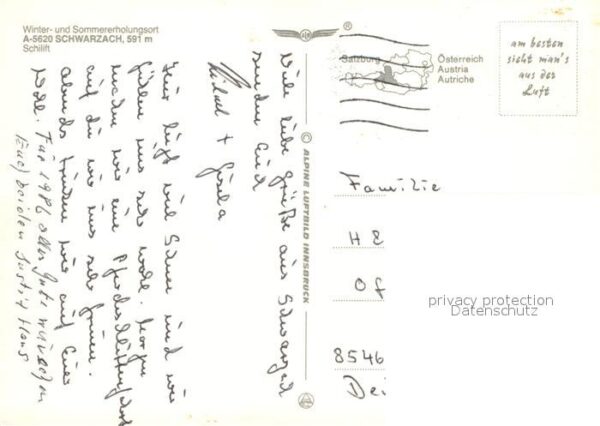 Winter- und Sommererholungsort
A-5620 SCHWARZACH, 591 m
Schilift
®
Salzburg
Österreich
Austria
Autriche
am besten
sieht man's
aus der
Luft
© ALPINE LUFTBILD INNSBRUCK
Viele liebe Grüße aus Schwarzach
senden Euch
Michael + Gisela
Hier liegt viel Schnee und wir
fühlen uns sehr wohl. Morgen
machen wir eine Pferdeschlittenfahrt
auf die wir uns sehr freuen.
Abends trinken wir auf Euer
Wohl. Für 1986 alles Gute wünschen
Euch beiden Justit Hans
Familie
H E
Of
8546
Dei
privacy protection
Datenschutz